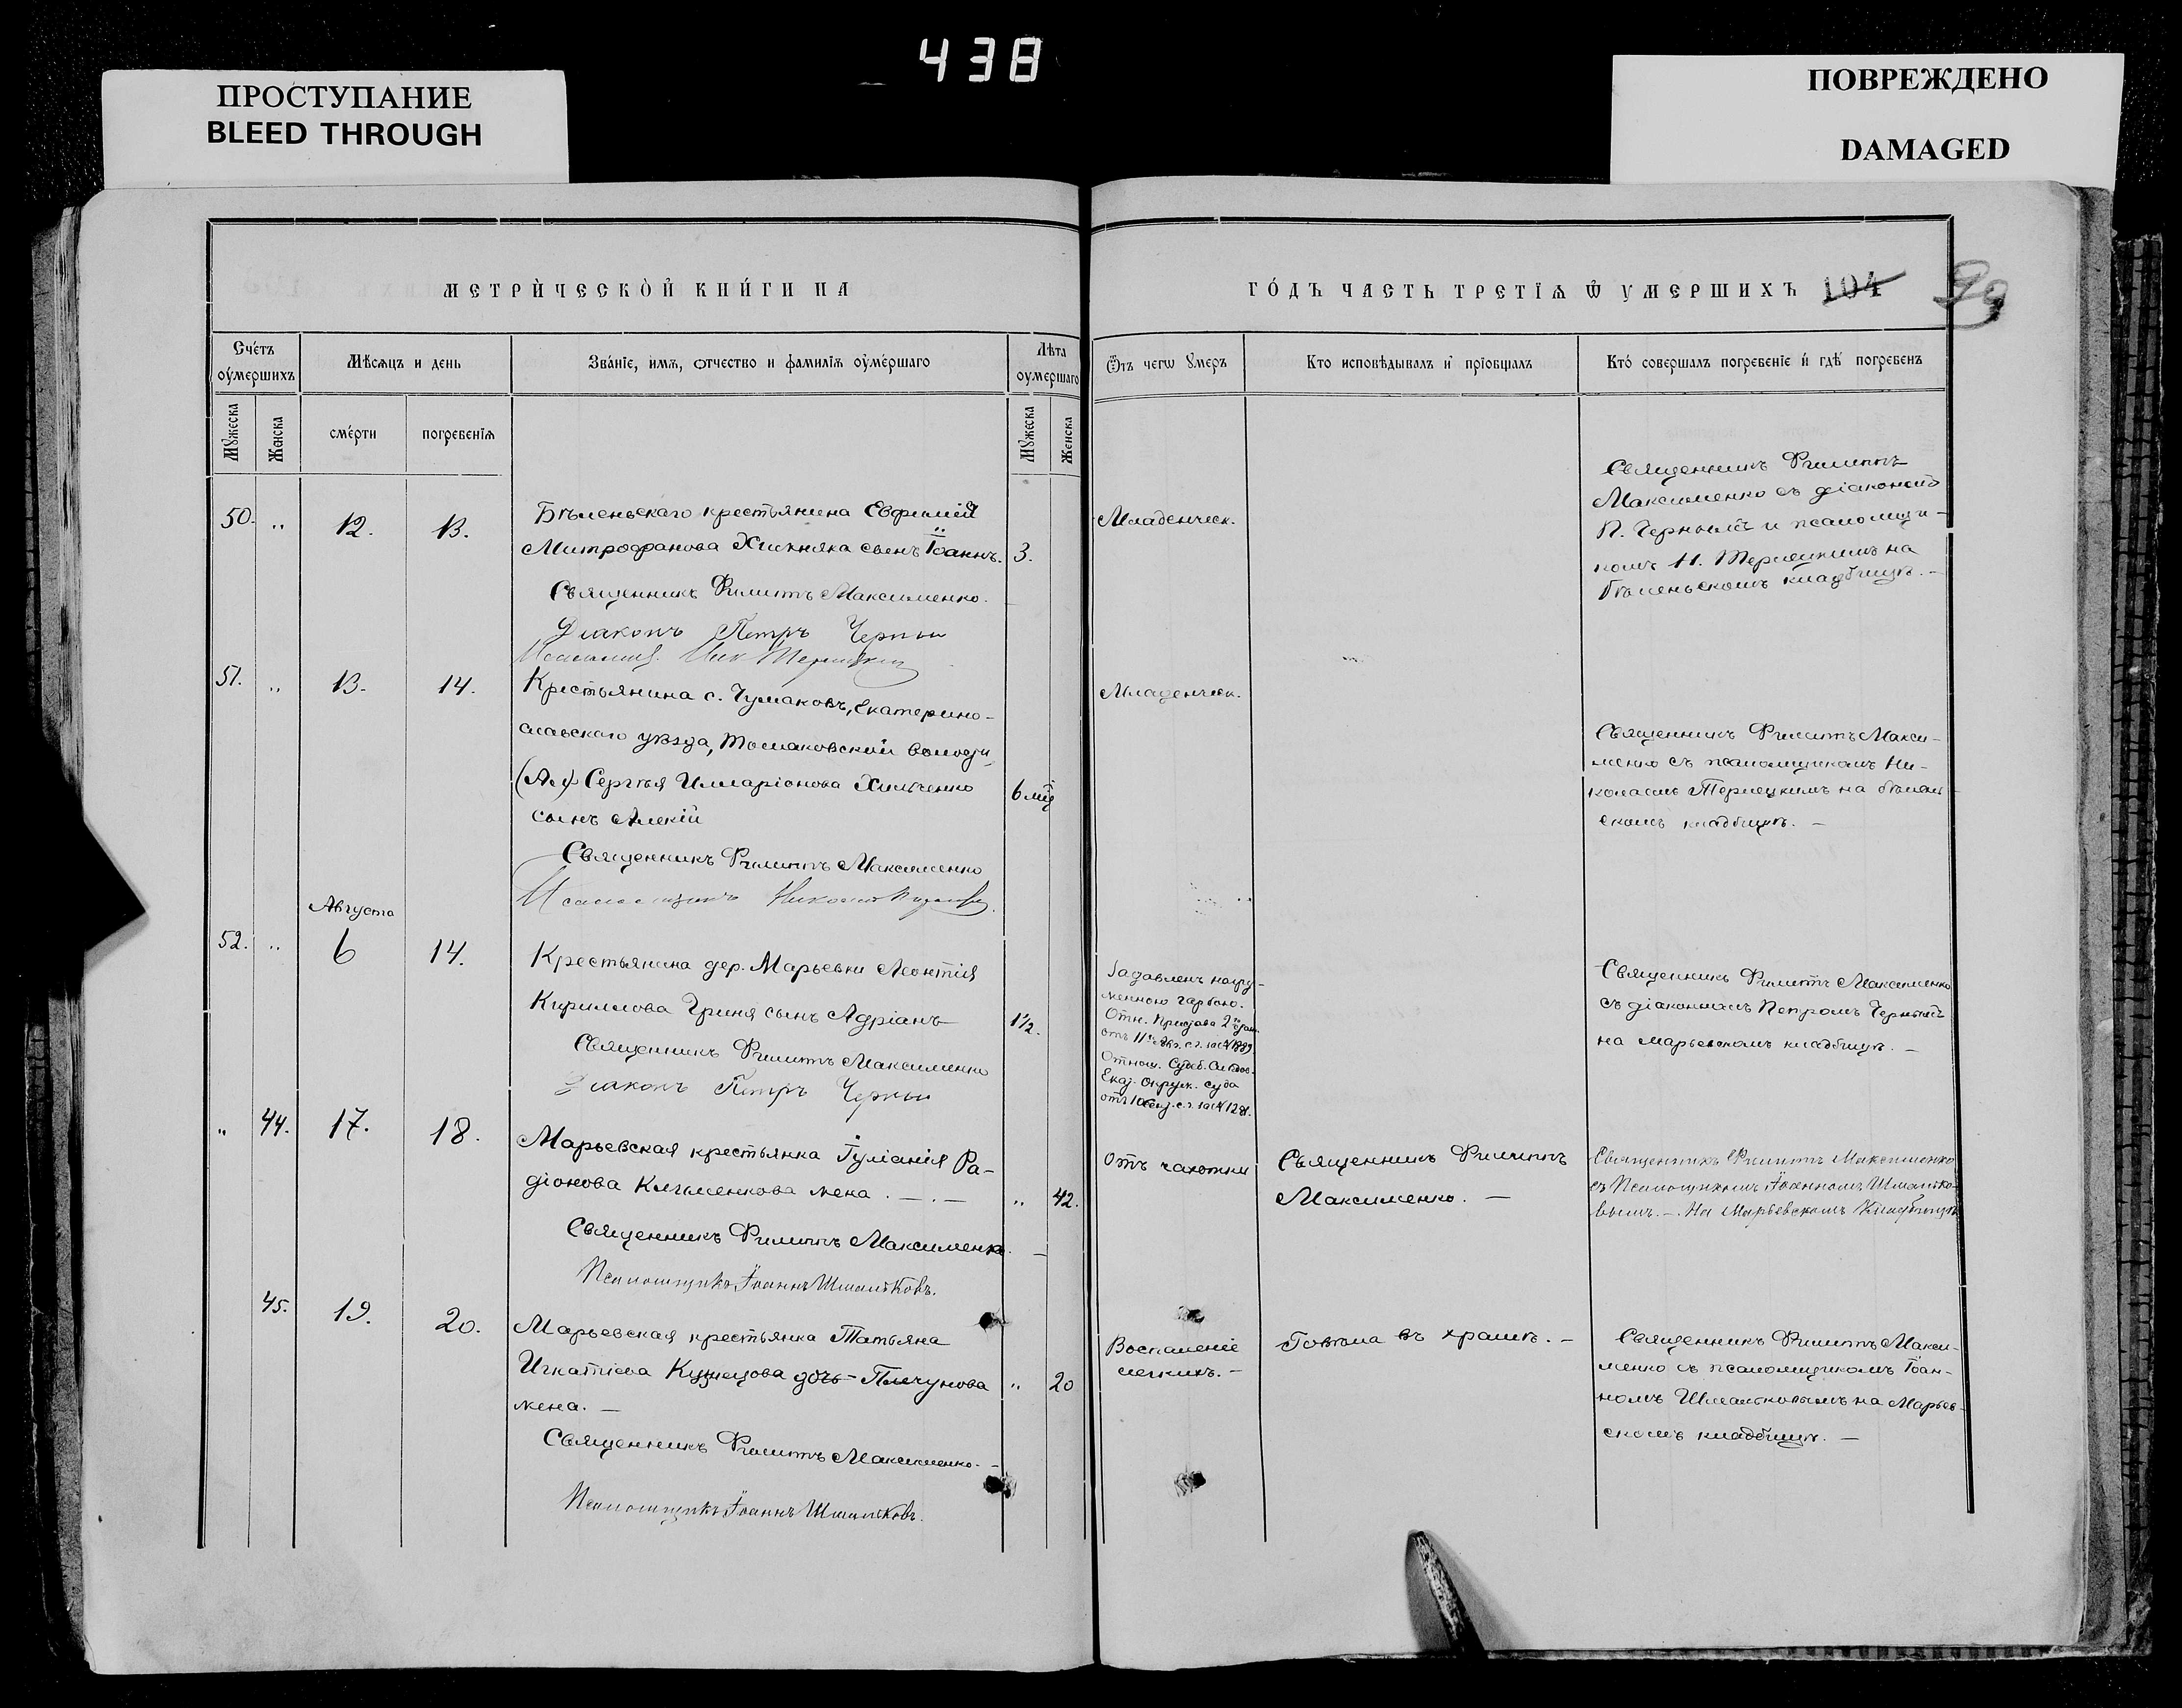 438
ПРОСТУПАНИЕ
BLEED THROUGH
ПОВРЕЖДЕНО
DAMAGED
МЕТРИ́ЧЕСКОЙ КНИ́ГИ НА
ГО́ДЪ ЧАСТЬ ТРЕТІѦ Ѿ УМЕРШИХЪ 104
Сче́тъ оу҆ме́ршихъ
Мѣ́сѧцъ и день
Зва́нїе, и́мѧ, ѻтчество и фамилїѧ оу҆ме́ршаго
Лѣта оуме́ршаго
Ѿтъ чегѡ ᲂумеръ
Кто исповѣдывалъ и прїобщалъ
Кто́ совершалъ погребенїе и гдѣ погребенъ
Мꙋжеска
Женска
сме́рти
погребенїѧ
Мꙋжеска
Женска
50. „ 12. 13.
Бѣленьскаго крестьянина Евфимія
Митрофанова Хижняка сынъ Іоаннъ. 3.
Священникъ Филиппъ Максименко.
Діаконъ Петръ Черный
Младенческ.
Священникъ Филиппъ
Максименко съ діакономъ
П. Чернымъ и псаломщи-
комъ Н. Терлецкимъ на
бѣленьскомъ кладбищѣ. —
51. „ 13. 14.
Крестьянина с. Чумаковъ, Екатерино-
славскаго уѣзда, Томаковской волости,
Сергѣя Илларіонова Хильченко
сынъ Алексій
6 мѣ
Священникъ Филиппъ Максименко
Псаломщикъ Николай
Младенческ.
Священникъ Филиппъ Макси-
менко съ псаломщикомъ Ни-
колаемъ Терлецкимъ на бѣлень-
скомъ кладбищѣ. —
Августа
52. „ 6 14.
Крестьянина дер. Марьевки Леонтія
Кириллова Гриня сынъ Адріанъ
1½.
Священникъ Филиппъ Максименко
Діаконъ Петръ Черный
Задавленъ нагру-
женною гарбою.
Отн. Пристава 2го
Отнош. Судеб. Слѣдов.
Екат. Окруж. суда
Священникъ Филиппъ Максименко
съ діакономъ Петромъ Чернымъ
на марьевскомъ кладбищѣ. —
„ 44. 17. 18.
Марьевская крестьянка Іуліанія Ра-
діонова Клименкова жена. —.—
„ 42.
Священникъ Филиппъ Максименко. —
Псаломщикъ Іоаннъ Шмальковъ.
Отъ чахотки
Священникъ Филиппъ
Максименко. —
Священникъ Филиппъ Максименко
съ Псаломщикомъ Іоанномъ Шмалько-
вымъ. — На Марьевскомъ Кладбищѣ
45. 19. 20.
Марьевская крестьянка Татьяна
Игнатіева Кузнецова дочь - Плечунова
жена. —
„ 20
Священникъ Филиппъ Максименко. —
Псаломщикъ Іоаннъ Шмальковъ.
Воспаленіе
легкихъ. —
Говѣла въ храмѣ. —
Священникъ Филиппъ Макси-
менко съ псаломщикомъ Іоан-
номъ Шмальковымъ на Марьев-
скомъ кладбищѣ. —